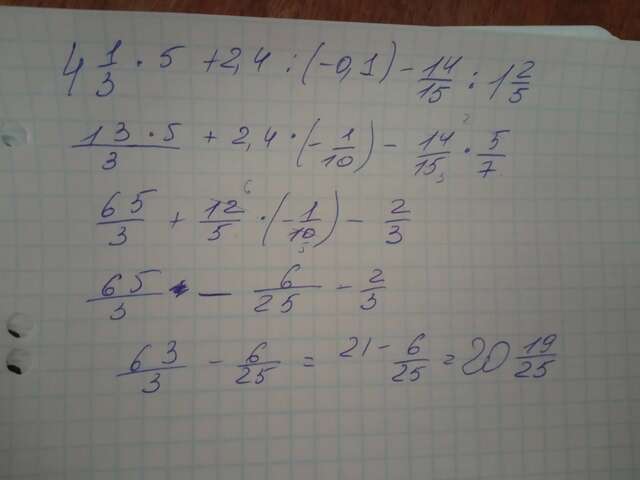 4 1/3 · 5 + 2,4 : (-0,1) - 14/15 : 1 2/5
13 · 5/3 + 2,4 · (- 1/10) - 14/15 · 5/7 2 3
65/3 + 12/5 · (- 1/10) - 2/3 6 5
65/3 - 6/25 - 2/3
63/3 - 6/25 = 21 - 6/25 = 20 19/25